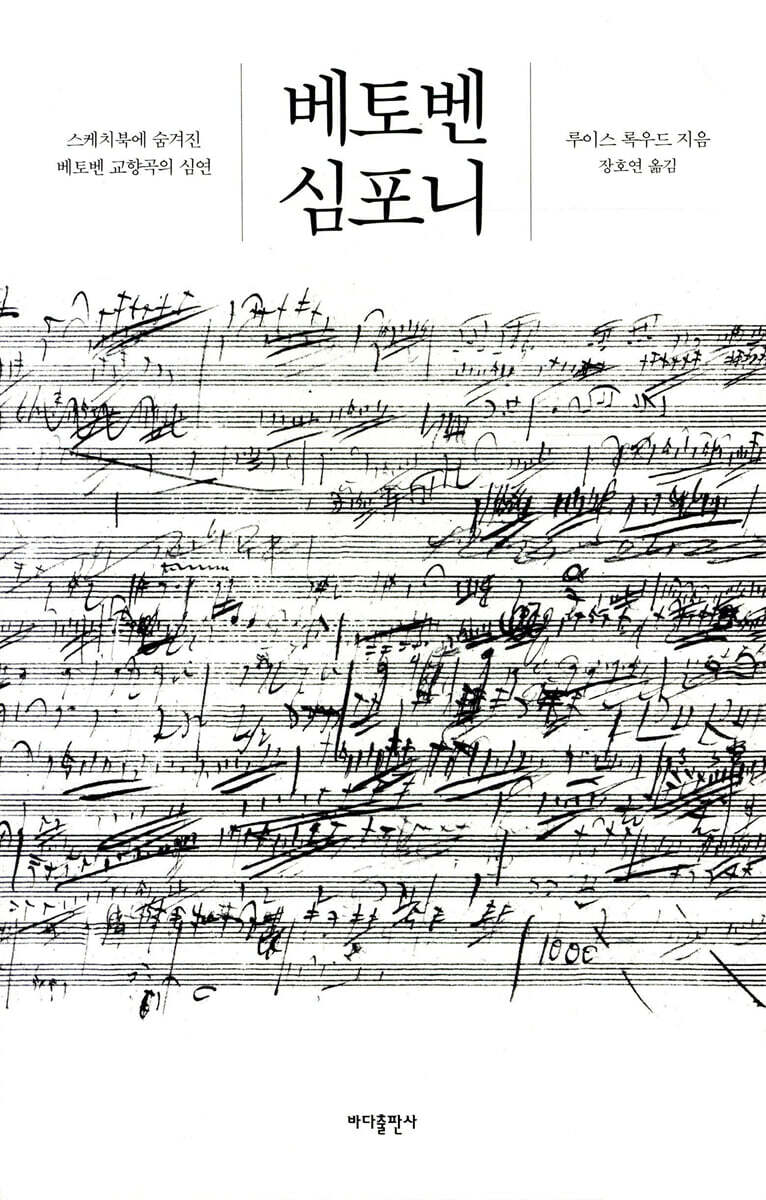 스케치북에 숨겨진
베토벤 교향곡의 심연
베토벤
심포니
루이스 록우드 지음
장호연 옮김
바다출판사